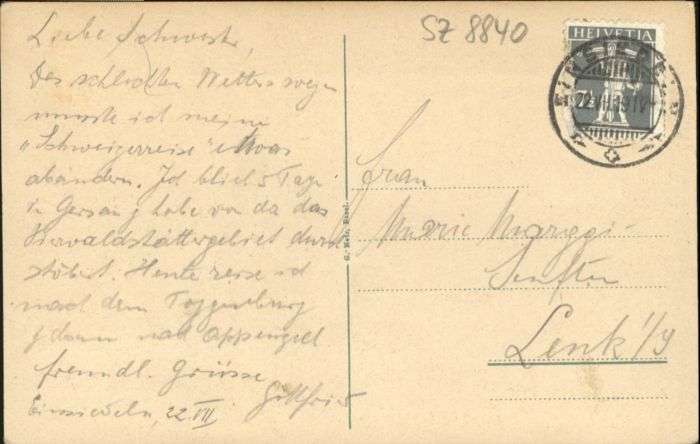 SZ 8840
HELVETIA
EINSIEDELN
22.VII.19
Liebe Schwester,
Des schlechten Wetters wegen
musste ich meine
"Schweizerreise" etwas
abändern. Ich blieb 5 Tage
in Gersau & habe von da das
Vierwaldstättergebiet durch
stöbert. Heute reise ich
nach dem Toggenburg
& dann nach Appenzell
freundl. Grüsse
Einsiedeln, 22 VII Gottfried
Frau
Marie Marggi-
Lenk i/S